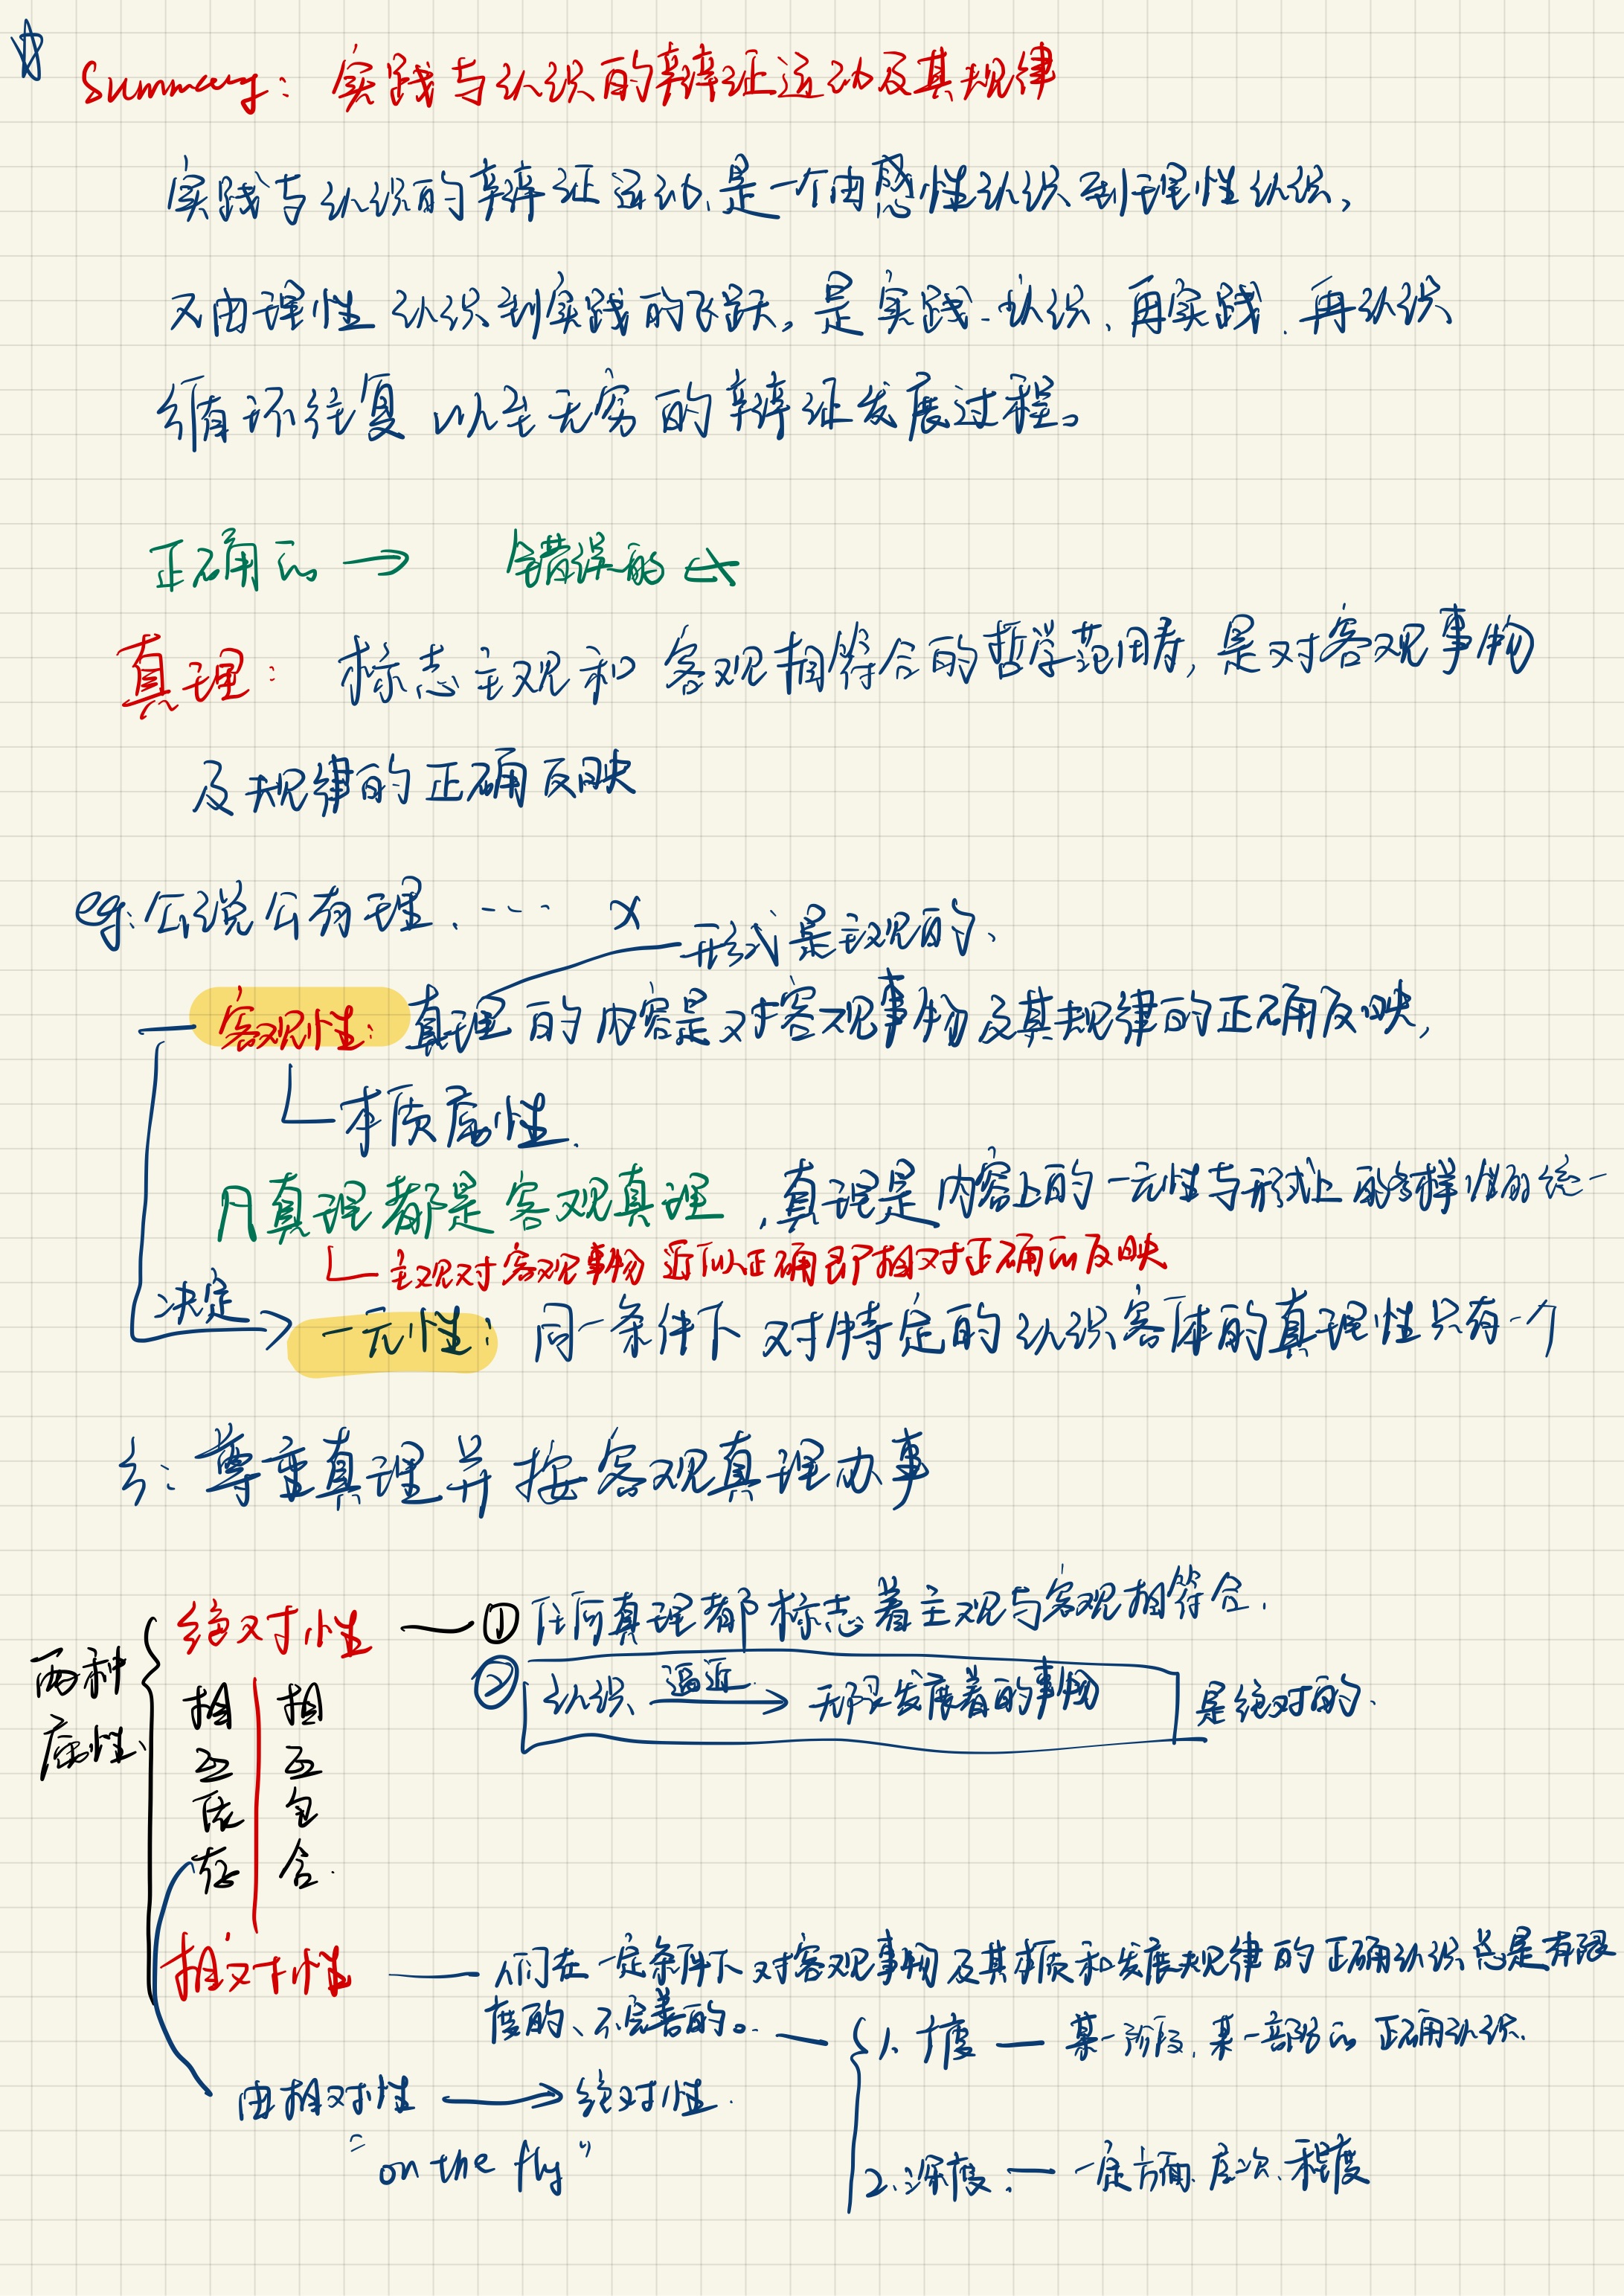 Summary: 实践与认识的辩证运动及其规律
实践与认识的辩证运动、是一个由感性认识到理性认识,
又由理性认识到实践的飞跃,是实践、认识、再实践、再认识
循环往复以至无穷的辩证发展过程。
正确的 → 错误的
真理: 标志主观和客观相符合的哲学范畴,是对客观事物
及规律的正确反映
eg:公说公有理、…… ×
形式是主观的、
客观性: 真理的内容是对客观事物及其规律的正确反映,
本质属性.
凡真理都是客观真理,真理是内容上的一元性与形式上的多样性的统一
主观对客观事物近似正确即相对正确的反映
决定
一元性: 同一条件下对特定的认识客体的真理性只有一个
: 尊重真理并按客观真理办事
两种
属性、
绝对性 — ① 任何真理都标志着主观与客观相符合.
② 认识 逼近 → 无限发展着的事物 是绝对的、
相互依存
相互包含.
相对性 — 人们在一定条件下对客观事物及其本质和发展规律的正确认识总是有限
度的、不完善的。
1、广度 — 某一阶段,某一部分的正确认识.
由相对性 → 绝对性.
"on the fly"
2.深度: — 一定方面、层次、程度